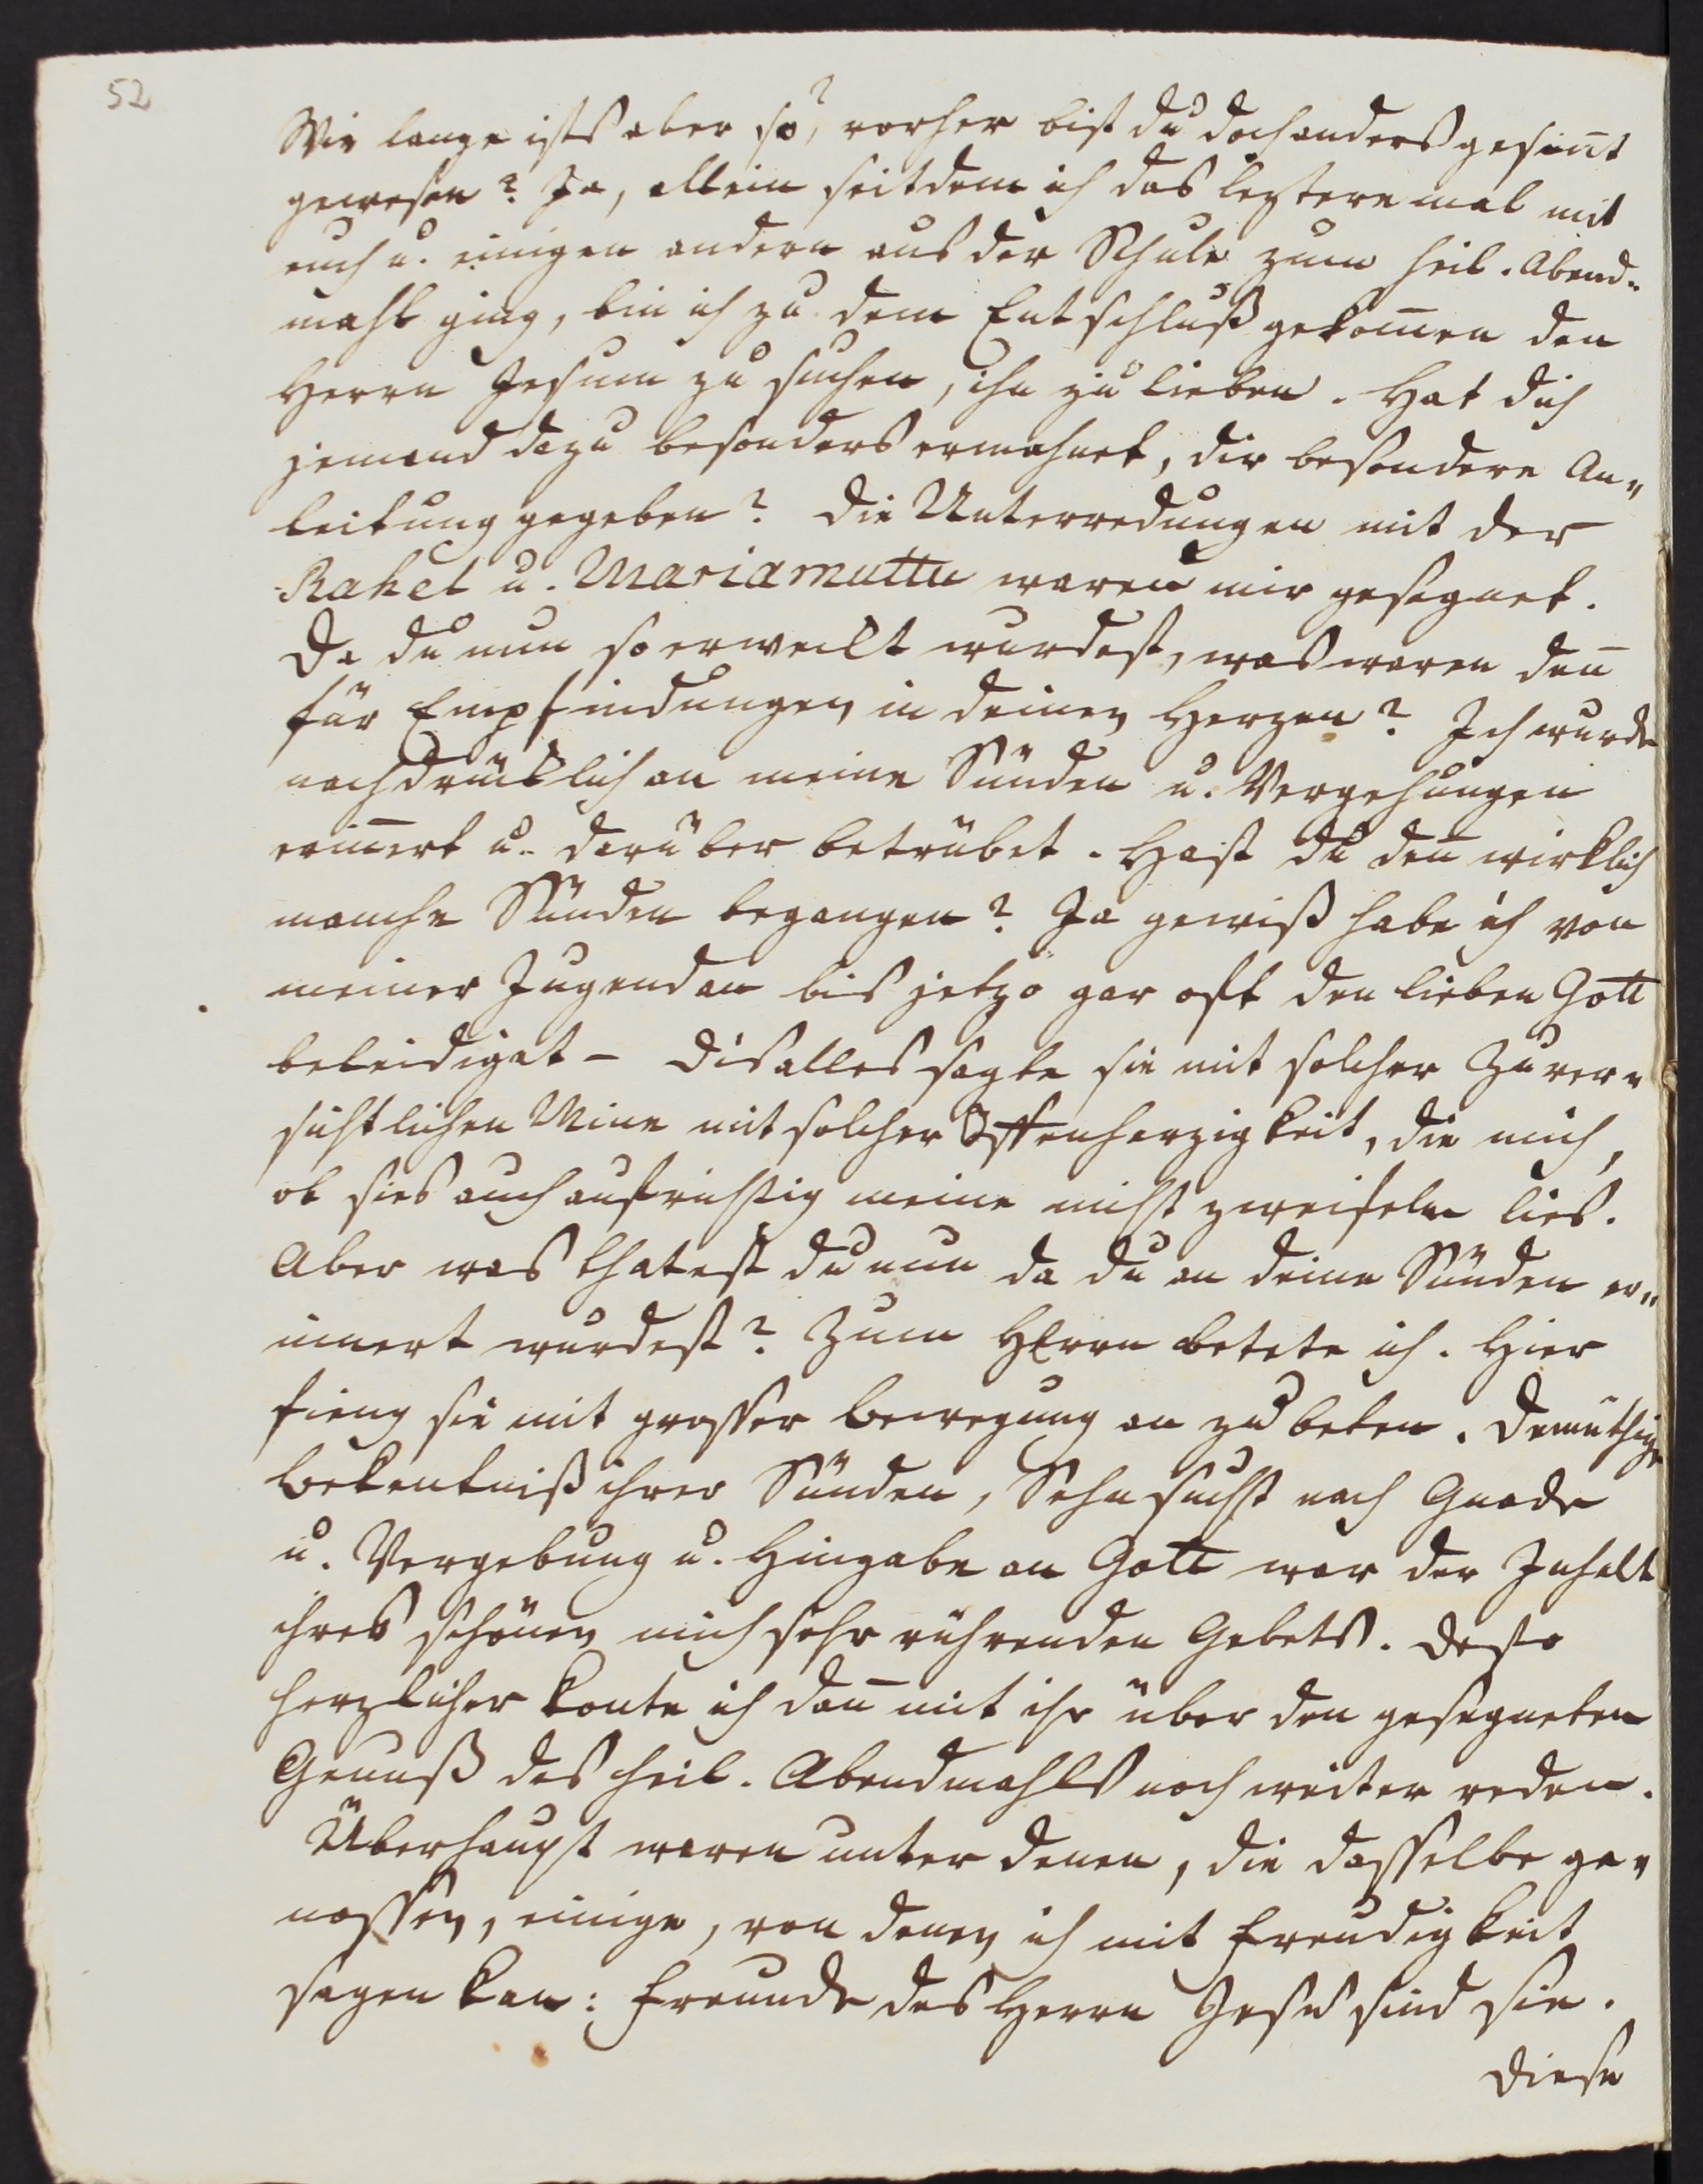 52
Wie lange ists aber so?, vorher bist du doch anders gesiñt
gewesen? Ja, allein seitdem ich das leztere mal mit
euch u. einigen andern aus der Schule zum heil. Abend„
mahl ging, bin ich zu dem Entschluß gekom̃en den
Herrn Jesum zu suchen, ihn zu lieben. Hat dich
jemand dazu besonders ermahnet, dir besondere An„
leitung gegeben? Die Unterredungen mit der
Rahel u. Mariamuttu waren mir gesegnet.
Da du nun so erwekt wurdest, was waren deñ
für Empfindungen in deinen Herzen? Ich wurde
nachdrücklich an meine Sünden u. Vergehungen
eriñert u. darüber betrübet. Hast du deñ wirklich
manche Sünden begangen? Ja gewiß habe ich von
meiner Jugend an bis jetzo gar oft den lieben Gott
beleidiget – Dis alles sagte sie mit solcher Zuver„
sichtlichen Mine mit solcher Offenherzigkeit, die mich,
ob sies auch aufrichtig meine nicht zweifeln lies.
Aber was thatest du nun da du an deine Sünden er„
innert wurdest? Zum HErrn betete ich. Hier
fieng sie mit grosser Bewegung an zu beten. Demüthige
Bekentniß ihrer Sünden, Sehnsucht nach Gnade
u. Vergebung u. Hingabe an Gott war der Inhalt
ihres schönen mich sehr rührenden Gebets. Desto
herzlicher konte ich dañ mit ihr über den gesegneten
Genuß des heil. Abendmahls noch weiter reden.
Überhaupt waren unter denen, die dasselbe ge„
nossen, einige, von denen ich mit Freudigkeit
sagen kan: Freunde des Herrn Jesu sind sie.
Diese